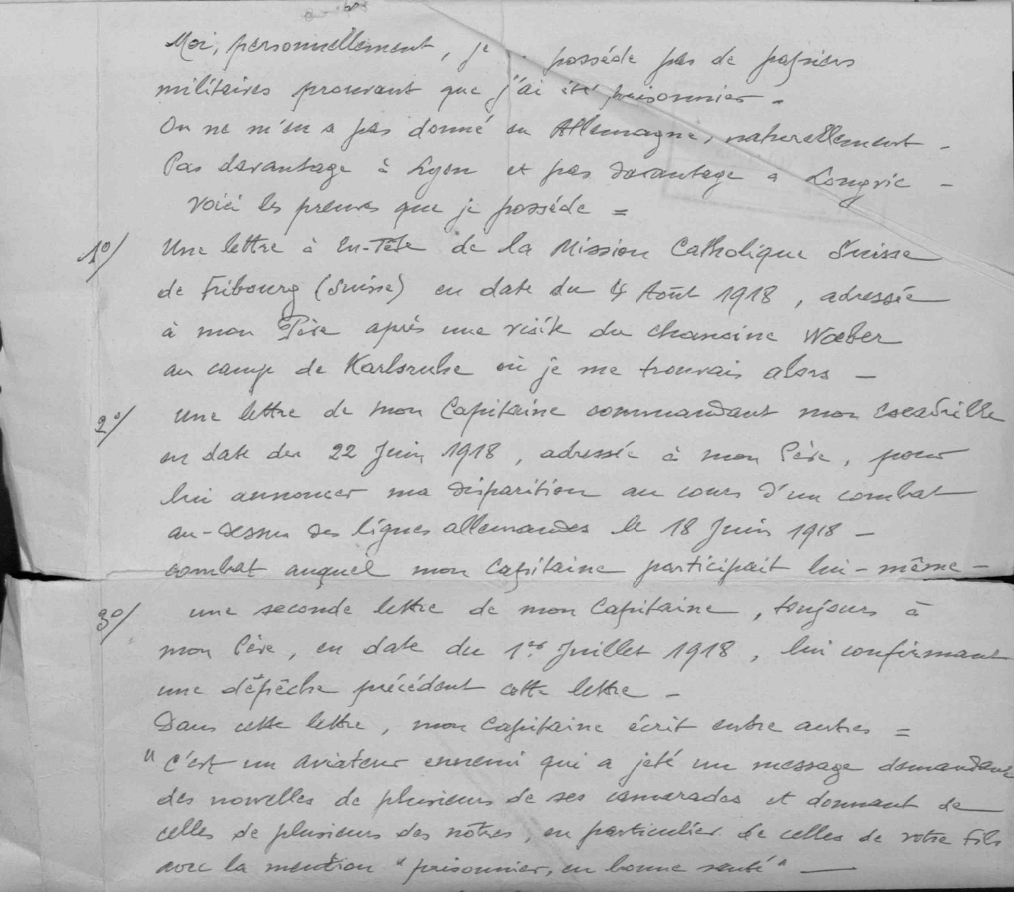 Moi, personnellement, je possède pas de papiers
militaires prouvant que j'ai été prisonnier -
On ne m'en a pas donné en Allemagne, naturellement -
Pas davantage à Lyon et pas davantage à Longvic -
Voici les preuves que je possède =
1°/ Une lettre à En-Tête de la Mission Catholique Suisse
de Fribourg (Suisse) en date du 4 Août 1918, adressée
à mon Père après une visite du chanoine Waeber
au camp de Karlsruhe où je me trouvais alors -
2°/ une lettre de mon Capitaine commandant mon escadrille
en date du 22 Juin 1918, adressée à mon Père, pour
lui annoncer ma disparition au cours d'un combat
au-dessus des lignes allemandes le 18 Juin 1918 -
combat auquel mon Capitaine participait lui-même -
3°/ une seconde lettre de mon Capitaine, toujours à
mon Père, en date du 1er Juillet 1918, lui confirmant
une dépêche précédant cette lettre -
Dans cette lettre, mon Capitaine écrit entre autres =
"C'est un aviateur ennemi qui a jeté un message demandant
des nouvelles de plusieurs de ses camarades et donnant de
celles de plusieurs des nôtres, en particulier de celles de votre fils
avec la mention "prisonnier, en bonne santé" —